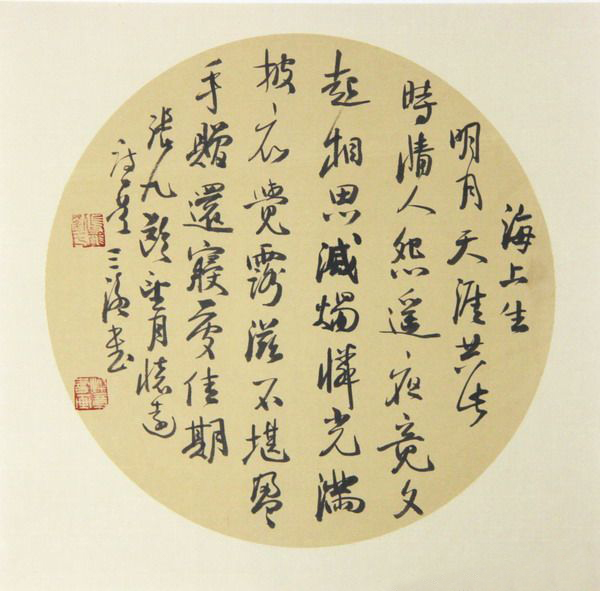 海上生
明月天涯共此
時情人怨遥夜竟夕
起相思滅燭憐光滿
披衣覺露滋不堪盈
手贈還寢夢佳期
張九齡望月懷遠
詩一首 三書